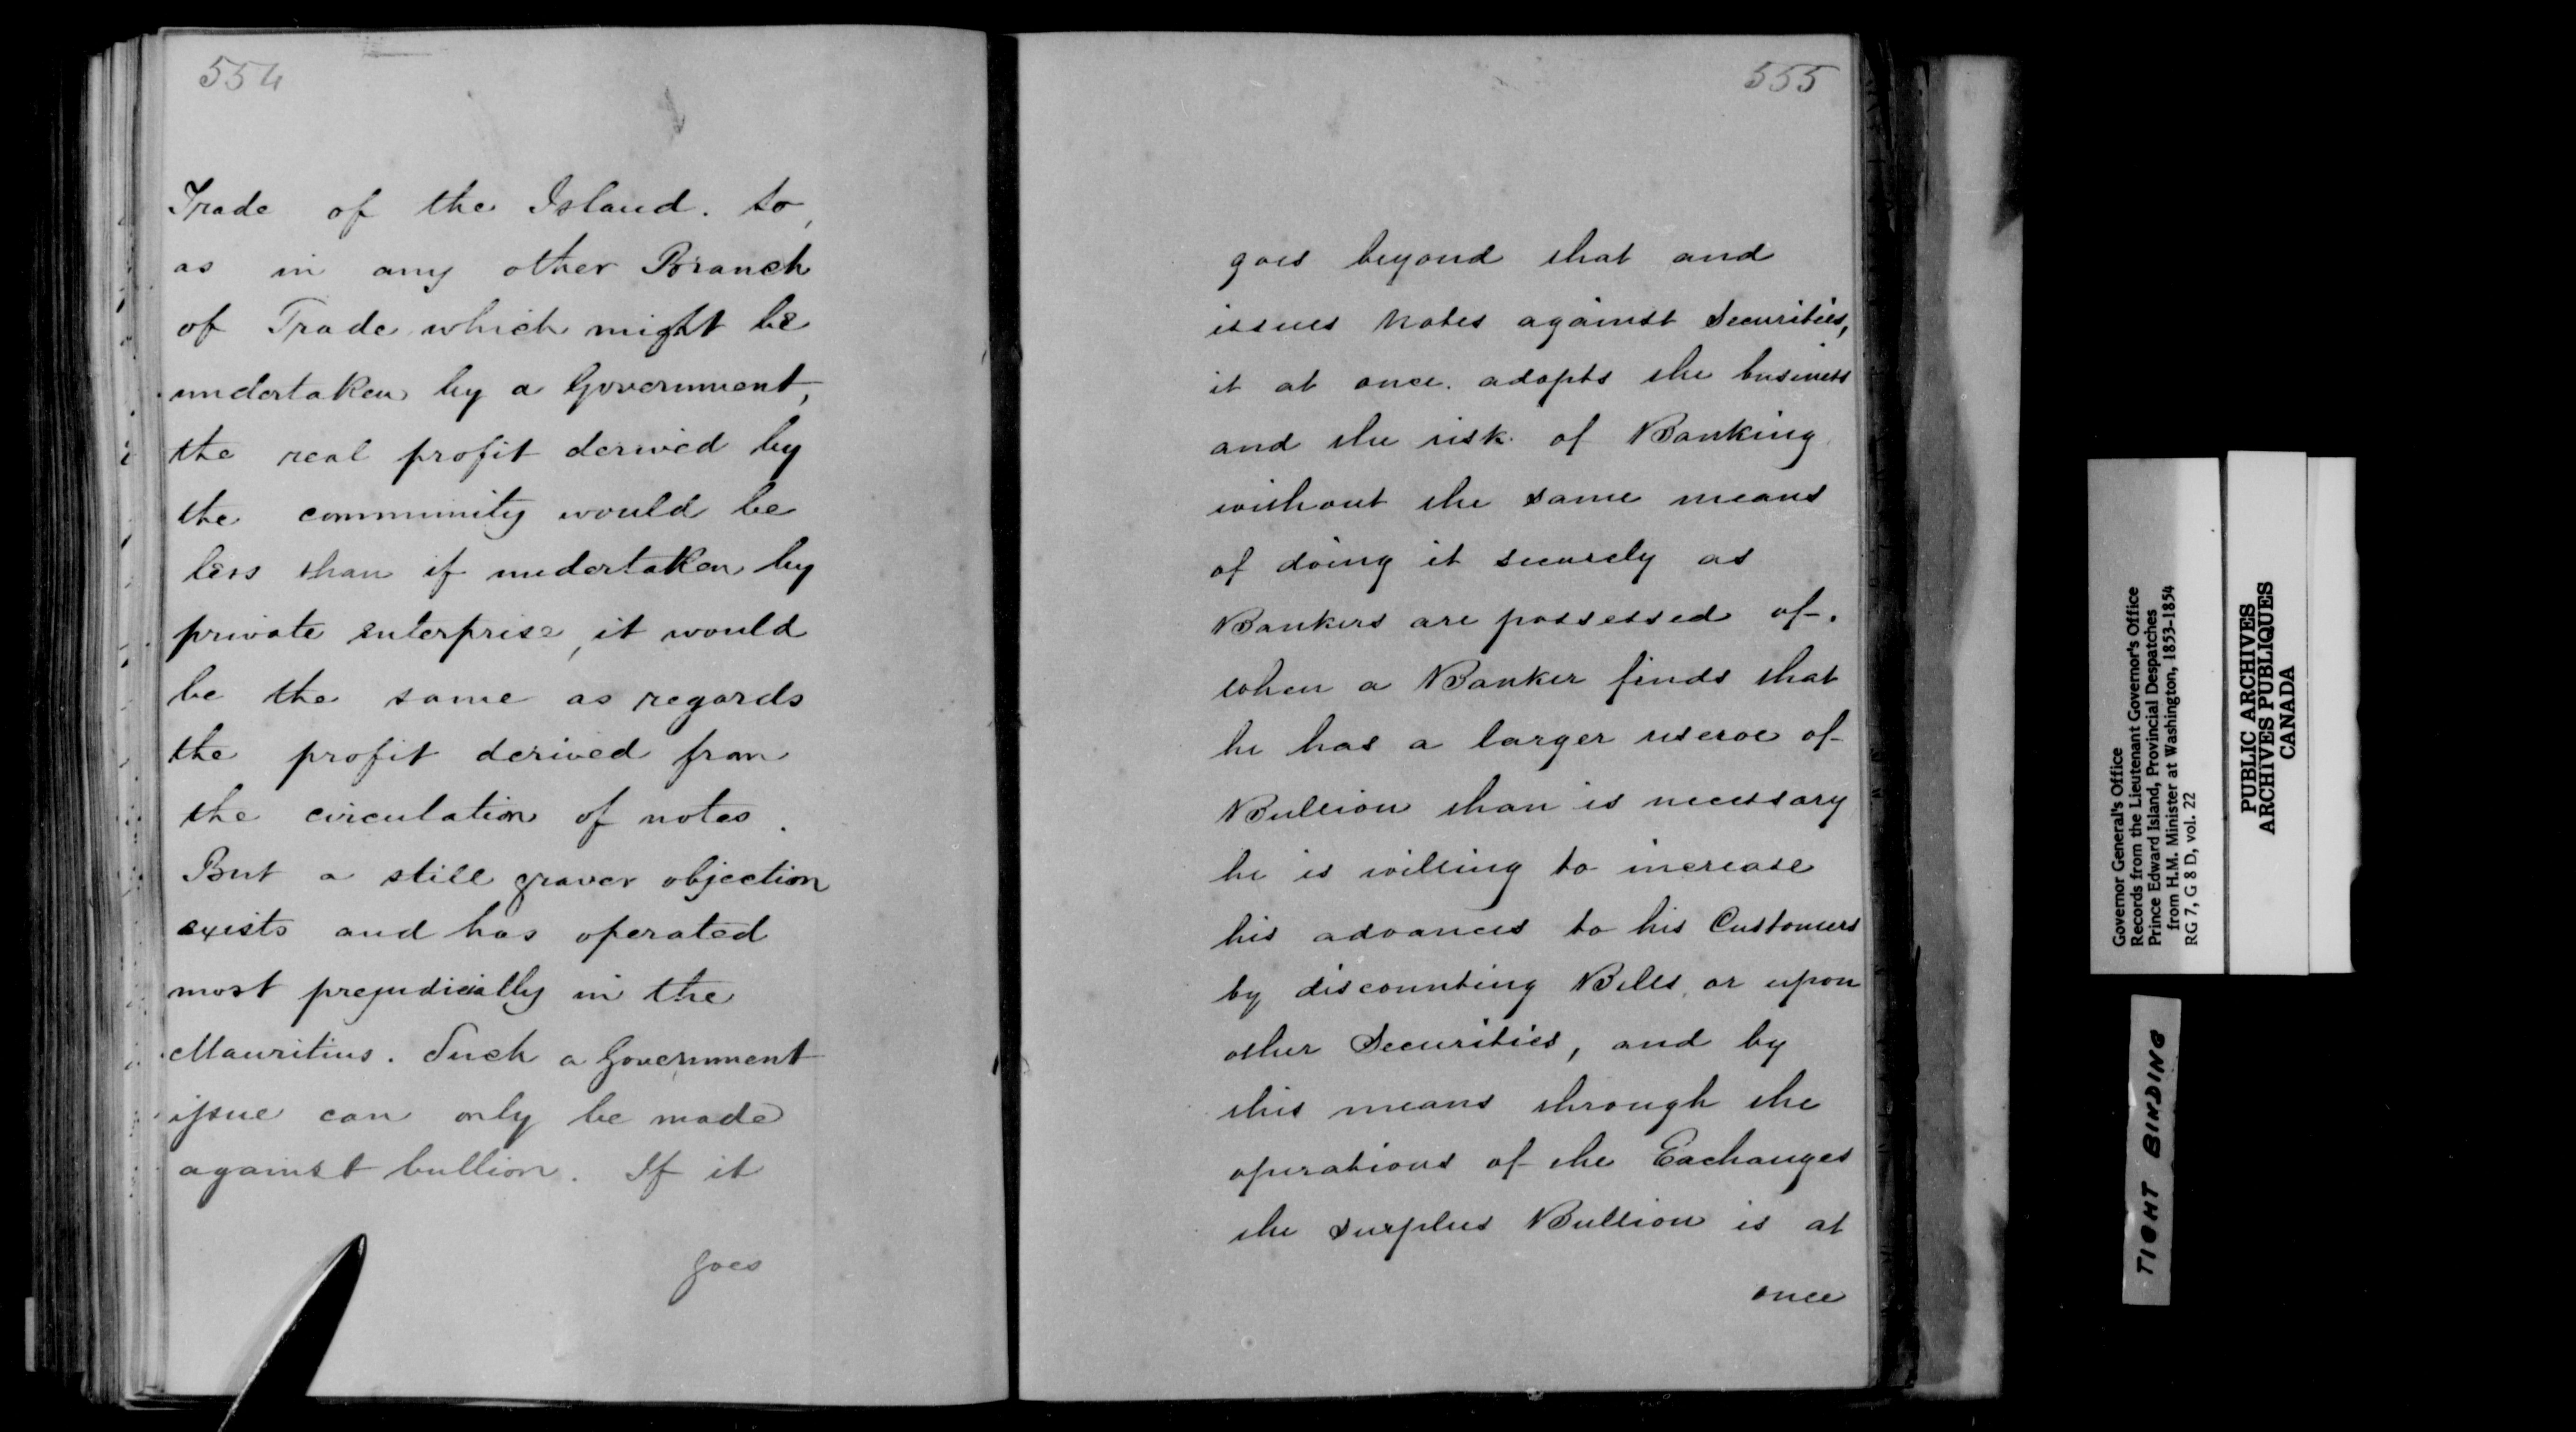 554
Trade of the Island. So,
as in any other Branch
of Trade which might be
undertaken by a Government,
the real profit derived by
the community would be
less than if undertaken by
private enterprise, it would
be the same as regards
the profit derived from
the circulation of notes.
But a still graver objection
exists and has operated
most prejudicially in the
Mauritius. Such a Government
issue can only be made
against bullion. If it
goes
555
goes beyond that and
issues Notes against Securities,
it at once adopts the business
and the risk of Banking
without the same means
of doing it securely as
Bankers are possessed of.
When a Banker finds that
he has a larger reserve of
Bullion than is necessary
he is willing to increase
his advances to his Customers
by discounting Bills, or upon
other Securities, and by
this means through the
operations of the Exchanges
the Surplus Bullion is at
once
Governor General's Office
Records from the Lieutenant Governor's Office
Prince Edward Island, Provincial Despatches
from H.M. Minister at Washington, 1853-1854
RG 7, G 8 D, vol. 22
PUBLIC ARCHIVES
ARCHIVES PUBLIQUES
CANADA
TIGHT BINDING